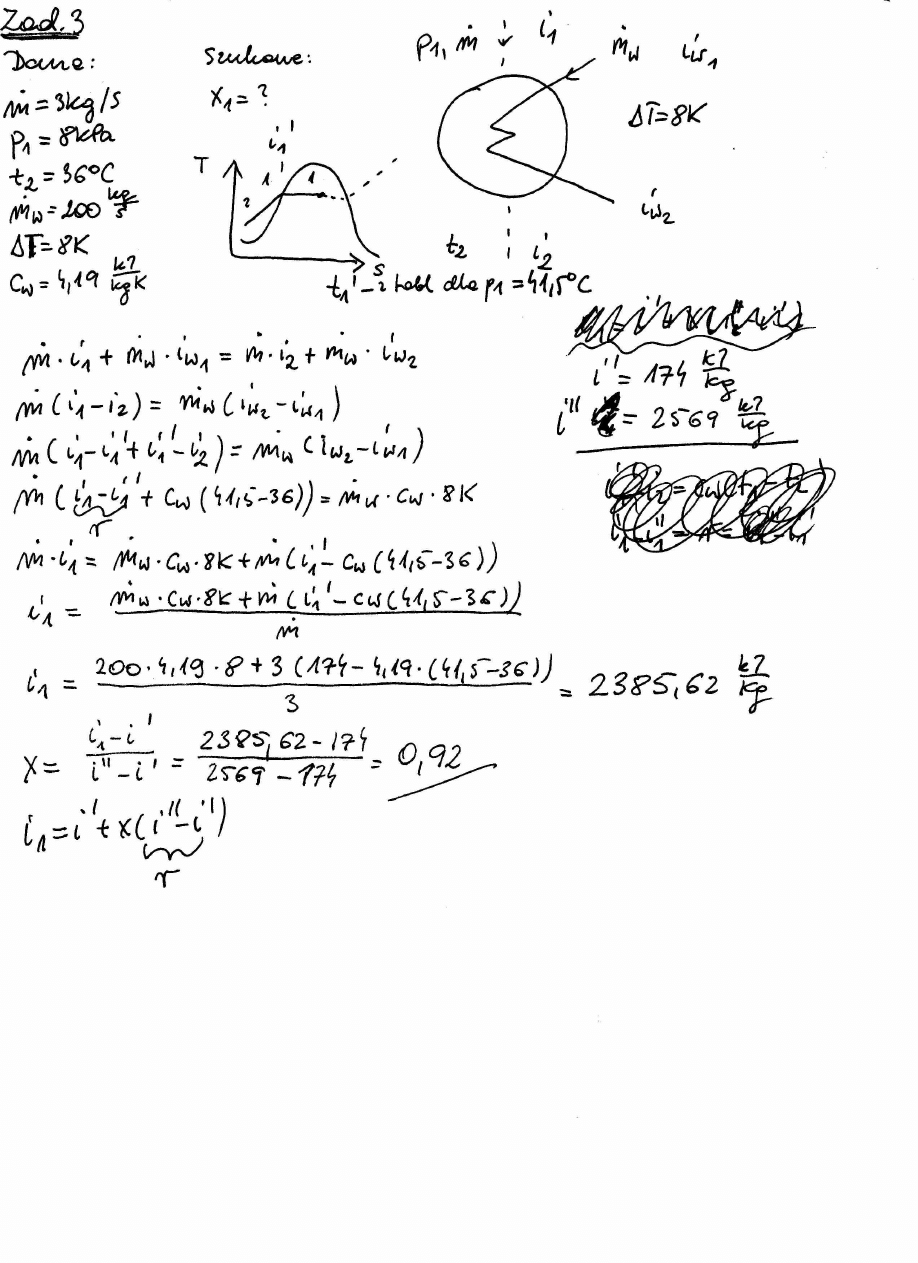 Zad. 3
Dane:
ṁ = 3kg/s
p₁ = 8kPa
t₂ = 36°C
ṁw = 200 kg/s
ΔT = 8K
Cw = 4,19 kJ/kgK
Szukane:
X₁ = ?
i₁'
T
1'
1
2
s
p₁, ṁ
i₁
ṁw iw₁
ΔT = 8K
iw₂
t₂ i₂
t₁' - z tabl dla p₁ = 41,5°C
i' = 174 kJ/kg
i'' = 2569 kJ/kg
ṁ · i₁ + ṁw · iw₁ = ṁ · i₂ + ṁw · iw₂
ṁ (i₁ - i₂) = ṁw (iw₂ - iw₁)
ṁ (i₁ - i₁' + i₁' - i₂) = ṁw (iw₂ - iw₁)
ṁ (i₁ - i₁' + Cw (41,5 - 36)) = ṁw · Cw · 8K
r
ṁ · i₁ = ṁw · Cw · 8K + ṁ (i₁' - Cw (41,5 - 36))
i₁ = ṁw · Cw · 8K + ṁ (i₁' - Cw (41,5 - 36)) / ṁ
i₁ = 200 · 4,19 · 8 + 3 (174 - 4,19 · (41,5 - 36)) / 3 = 2385,62 kJ/kg
X = i₁ - i' / i'' - i' = 2385,62 - 174 / 2569 - 174 = 0,92
i₁ = i' + X (i'' - i')
r